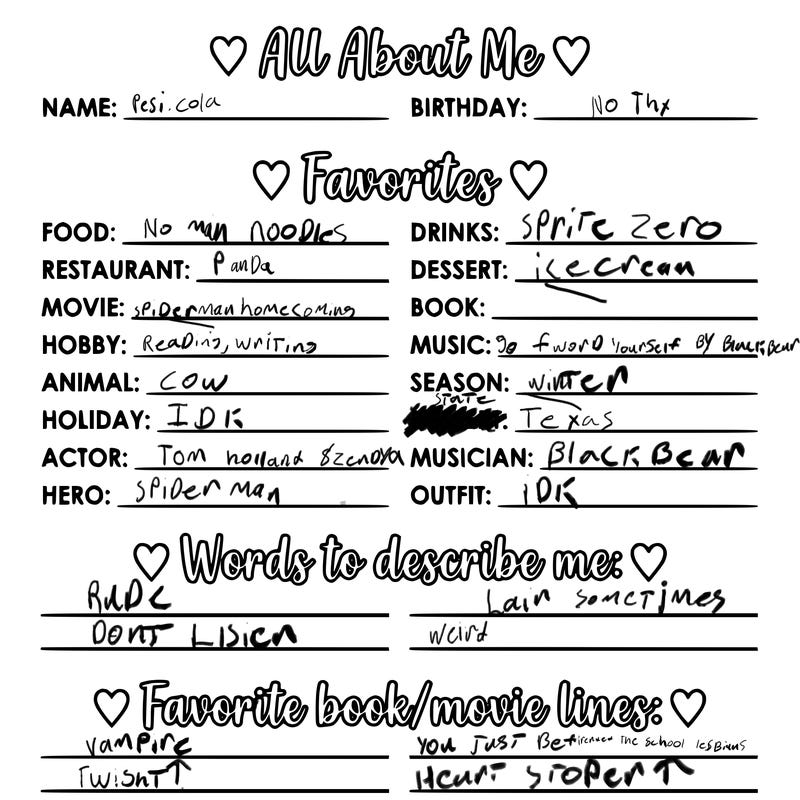 All About Me
NAME: Pesi.cola BIRTHDAY: No Thx
Favorites
FOOD: No man noodles DRINKS: Sprite Zero
RESTAURANT: Panda DESSERT: icecream
MOVIE: spiderman homecoming BOOK:
HOBBY: Reading, writing MUSIC: go f word yourself BY BlackBear
ANIMAL: cow SEASON: winter
HOLIDAY: IDK state : Texas
ACTOR: Tom holland & Zendya MUSICIAN: Black Bear
HERO: spiderman OUTFIT: iDK
Words to describe me:
RuDe Lair someTimes
DonT Lisien weird
Favorite book/movie lines:
vampire You JusT The school lesbians
TwishT↑ Heart sToper↑